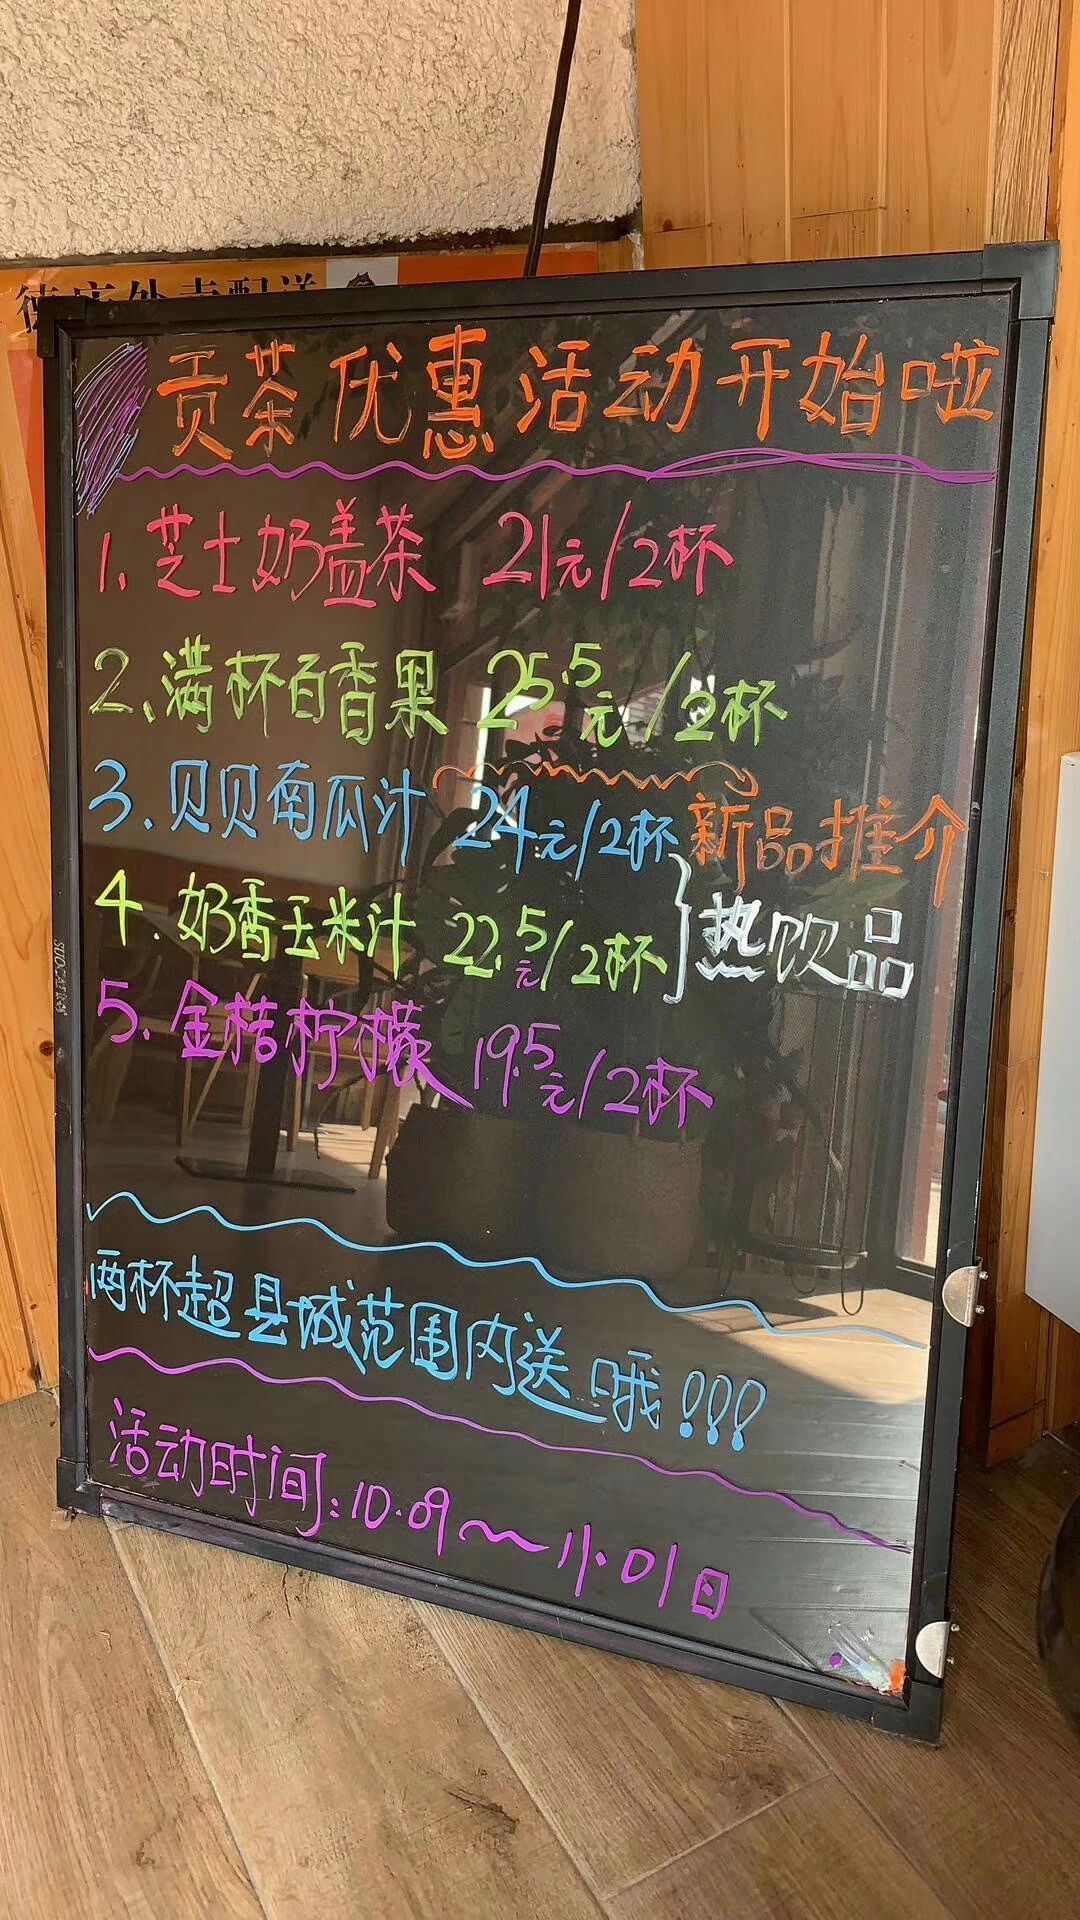 贡茶优惠活动开始啦
1.芝士奶盖茶 21元/2杯
2.满杯百香果 25.5元/2杯
3.贝贝南瓜汁 24元/2杯 新品推介
4.奶香玉米汁 22.5元/2杯 热饮品
5.金桔柠檬 19.5元/2杯
两杯超县城范围内送哦!!!
活动时间:10.09~11.01日